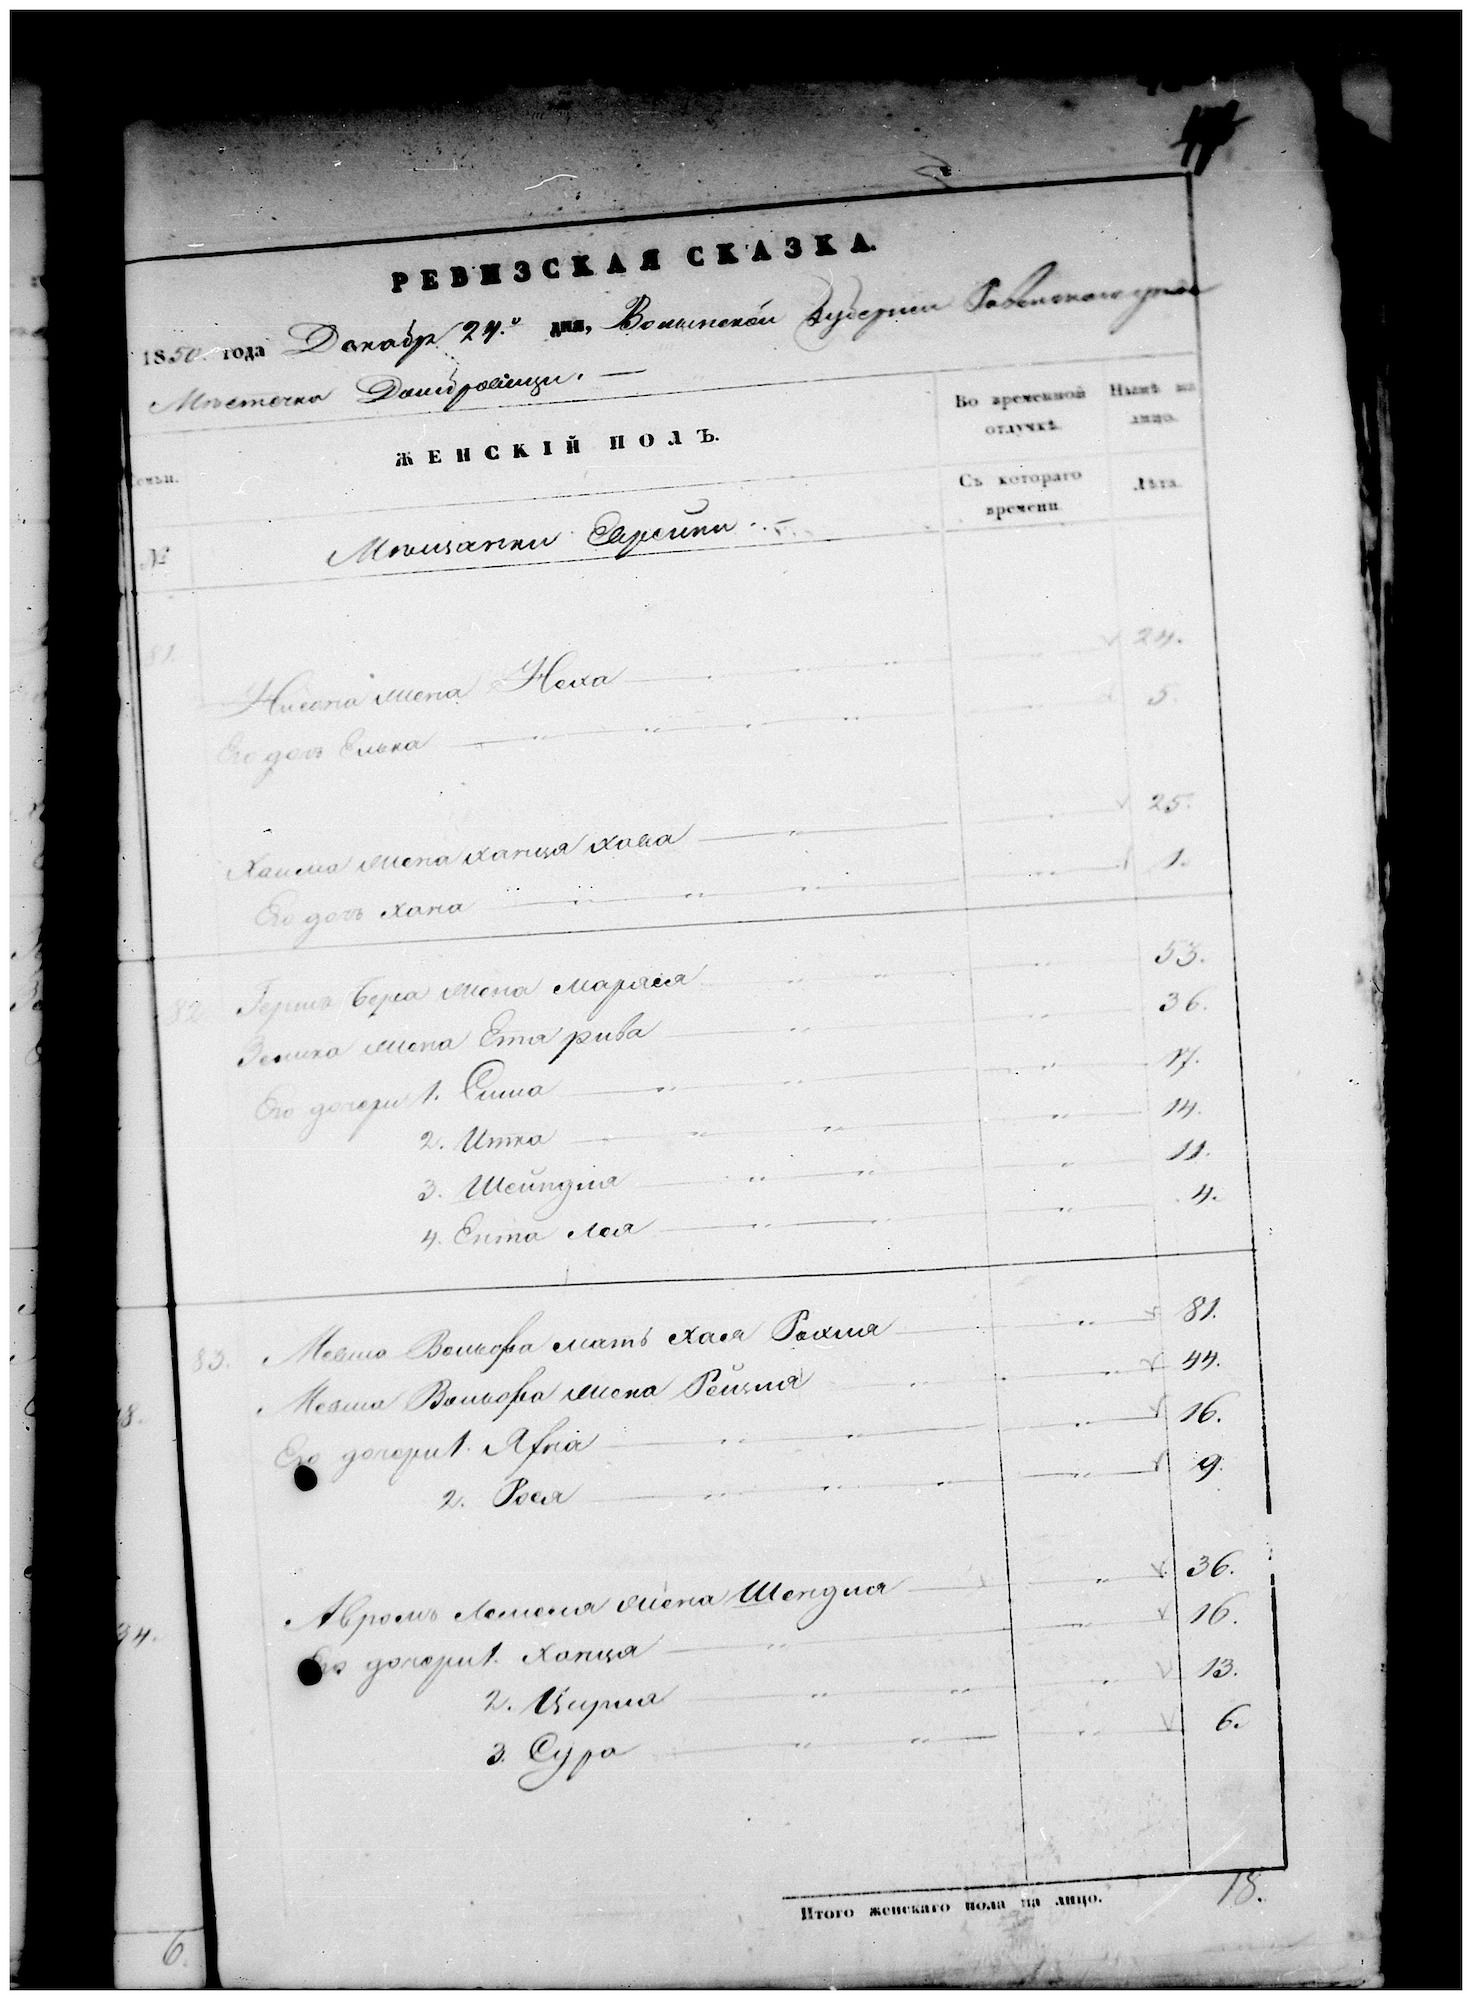 РЕВИЗСКАЯ СКАЗКА.
1850 года Декабр 24.º дня, Волынской Губернии Ровенского уезда
Местечка Домбровицы. —
Семьи.
ЖЕНСКІЙ ПОЛЪ.
Во временной отлучкѣ.
Нынѣ на лицо.
№
Мещанки Еврейки
Съ котораго времени.
Лѣта.
81. Нисона жена Неха 24.
Его дочь Елька 5.
Хаима жена Ханця Хова 25.
Его дочь Хана 1.
82. Гершъ Бера жена Маряся 53.
Зелика жена Ета рива 36.
Его дочери 1. Сима 17.
2. Итка 14.
3. Шейндля 11.
4. Ента Лея 4.
83. Мевша Вольфа мать Хася Рохля 81.
Мевша Вольфа жена Рейзля 44.
Его дочери 1. 16.
2. Рося 9.
Авромъ жена Шендля 36.
Его дочери 1. Ханця 16.
2. Цирля 13.
3. Сура 6.
Итого женскаго пола на лицо. 18.
8.
34.
6.